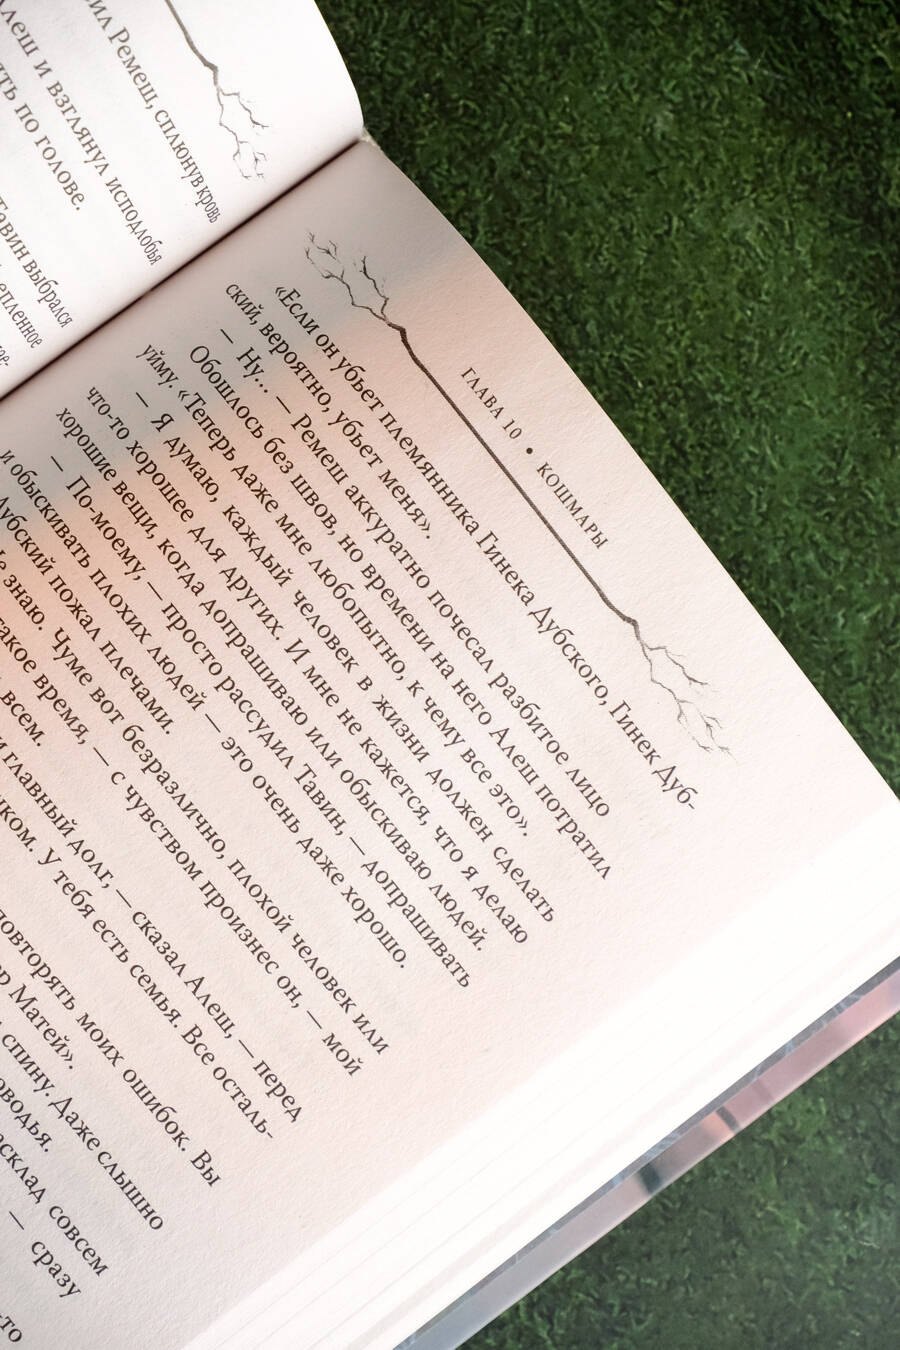 сил Ремеш, сплюнув кровь
Алеш и взглянул исподлобья
по голове.
Тавин выбрался
ГЛАВА 10 • КОШМАРЫ
«Если он убьет племянника Гинека Дубского, Гинек Дуб-
ский, вероятно, убьет меня».
— Ну... — Ремеш аккуратно почесал разбитое лицо
Обошлось без швов, но времени на него Алеш потратил
уйму. «Теперь даже мне любопытно, к чему все это».
— Я думаю, каждый человек в жизни должен сделать
что-то хорошее для других. И мне не кажется, что я делаю
хорошие вещи, когда допрашиваю или обыскиваю людей.
— По-моему, — просто рассудил Тавин, — допрашивать
и обыскивать плохих людей — это очень даже хорошо.
Дубский пожал плечами.
знаю. Чуме вот безразлично, плохой человек или
такое время, — с чувством произнес он, — мой
всем.
и главный долг, — сказал Алеш, — перед
У тебя есть семья. Все осталь-
повторять моих ошибок. Вы
Матей».
спину. Даже слышно
расклад совсем
— сразу